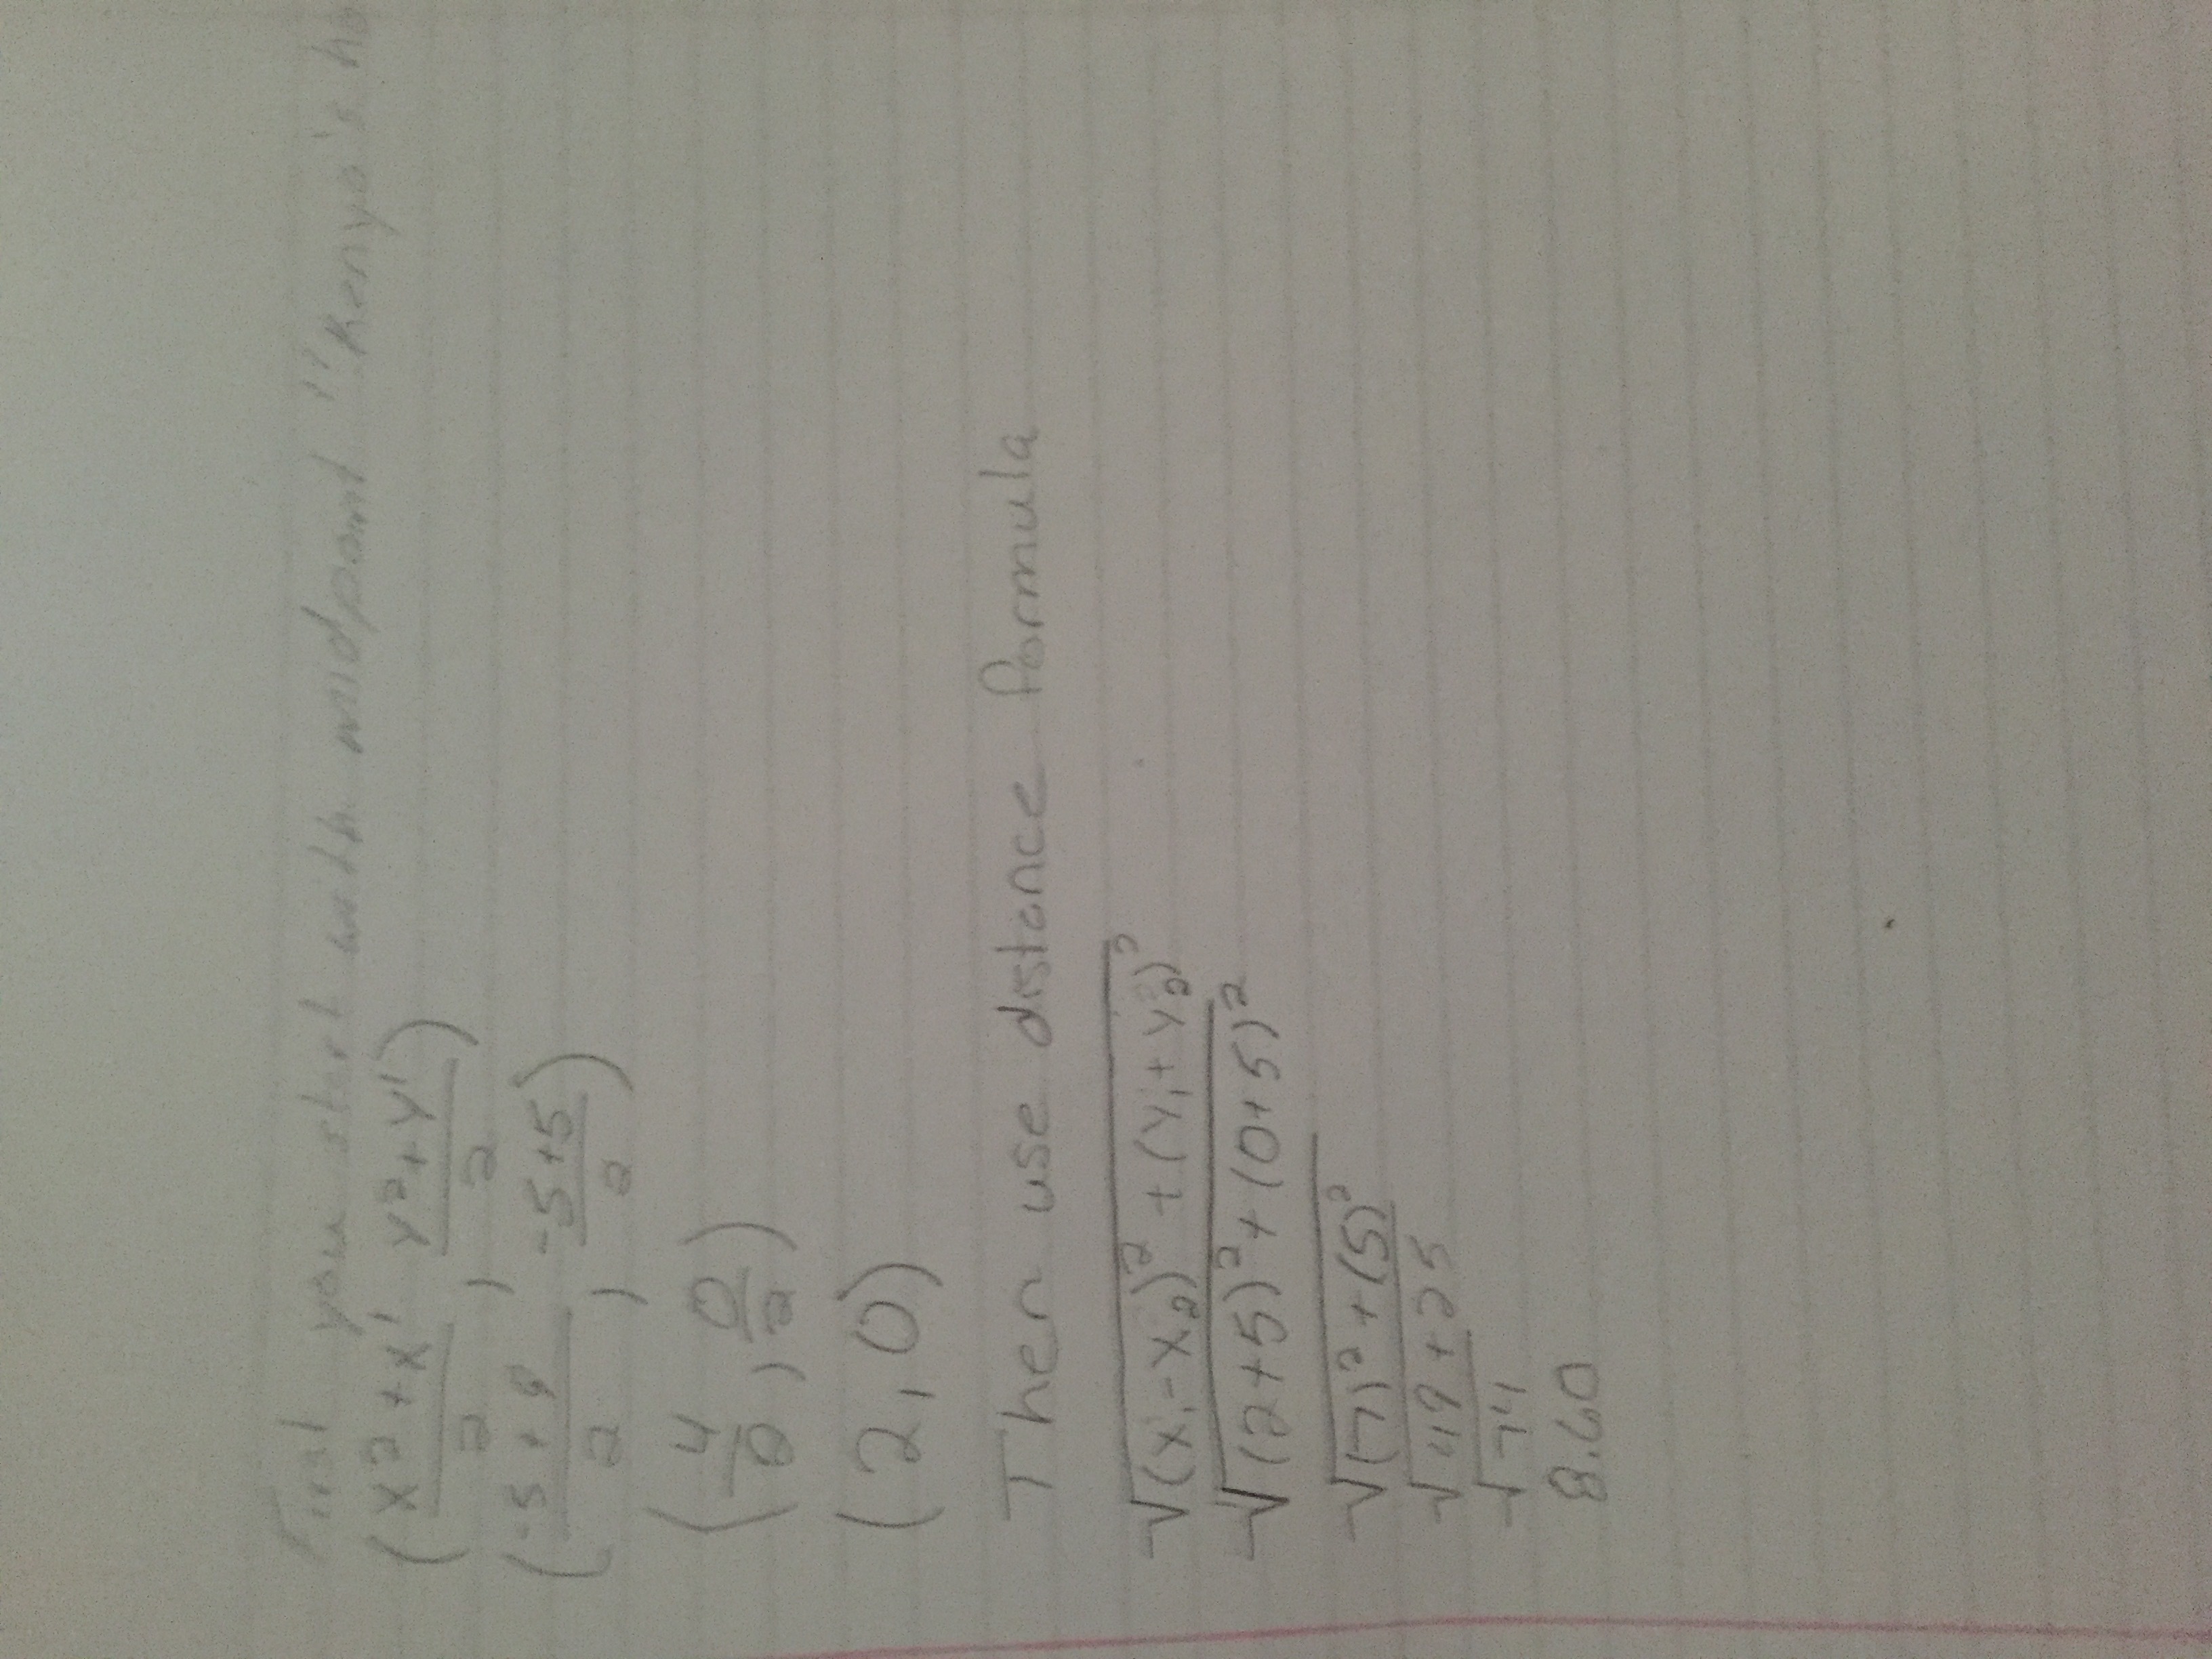 First you start with midpoint "Kenya's ho
(x2+x1/2, y2+y1/2)
(-5+9/2, -5+5/2)
(4/2, 0/2)
(2,0)
Then use distance formula
√(x1-x2)²+(y1+y2)²
√(2+5)²+(0+5)²
√(7)²+(5)²
√49+25
√74
8.60